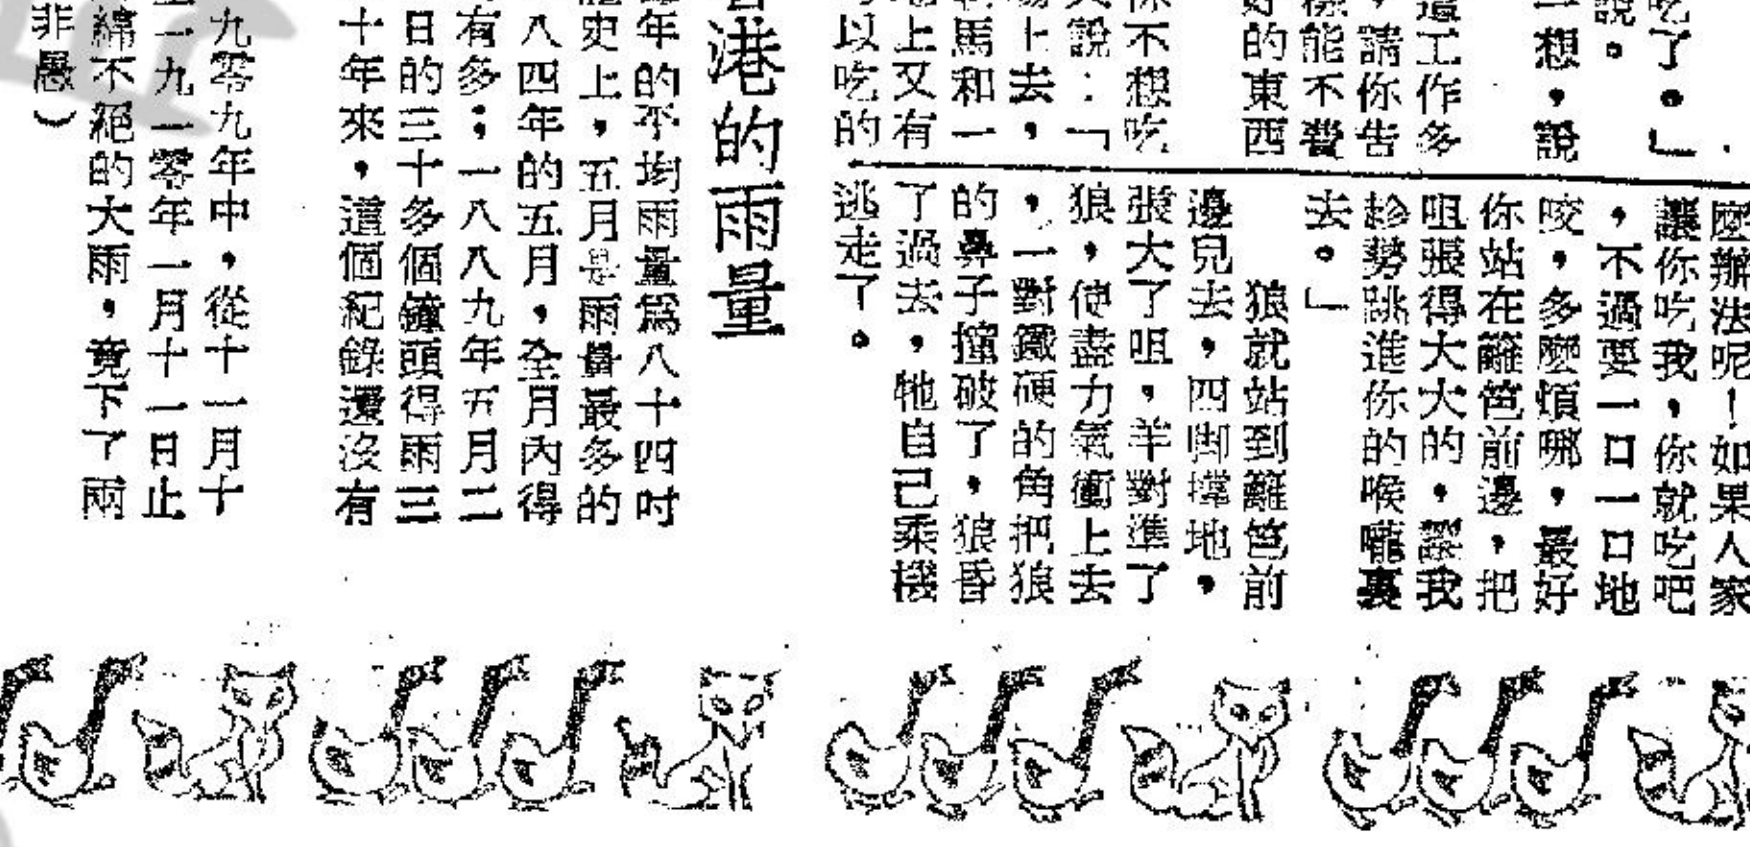 吃了。」
說。
一想,說
工作多
,請你告
能不費
的東西
你不想吃
說:「
上去,
馬和一
上又有
以吃的
麼辦法呢!如果人家
讓你吃我,你就吃吧
,不過要一口一口地
咬,多麼煩哪,最好
你站在籬笆前邊,把
咀張得大大的,讓我
趁勢跳進你的喉嚨裏
去。」
狼就站到籬笆前
邊兒去,四脚撐地,
張大了咀,羊對準了
狼,使盡力氣衝上去
,一對鐵硬的角把狼
的鼻子撞破了,狼昏
了過去,牠自己乘機
逃走了。
港的雨量
年的平均雨量爲八十四吋
史上,五月是雨量最多的
八四年的五月,全月內得
有多;一八八九年五月二
日的三十多個鐘頭得雨三
十年來,這個紀錄還沒有
九零九年中,從十一月十
一九一零年一月十一日止
綿不絕的大雨,竟下了兩
非愚)